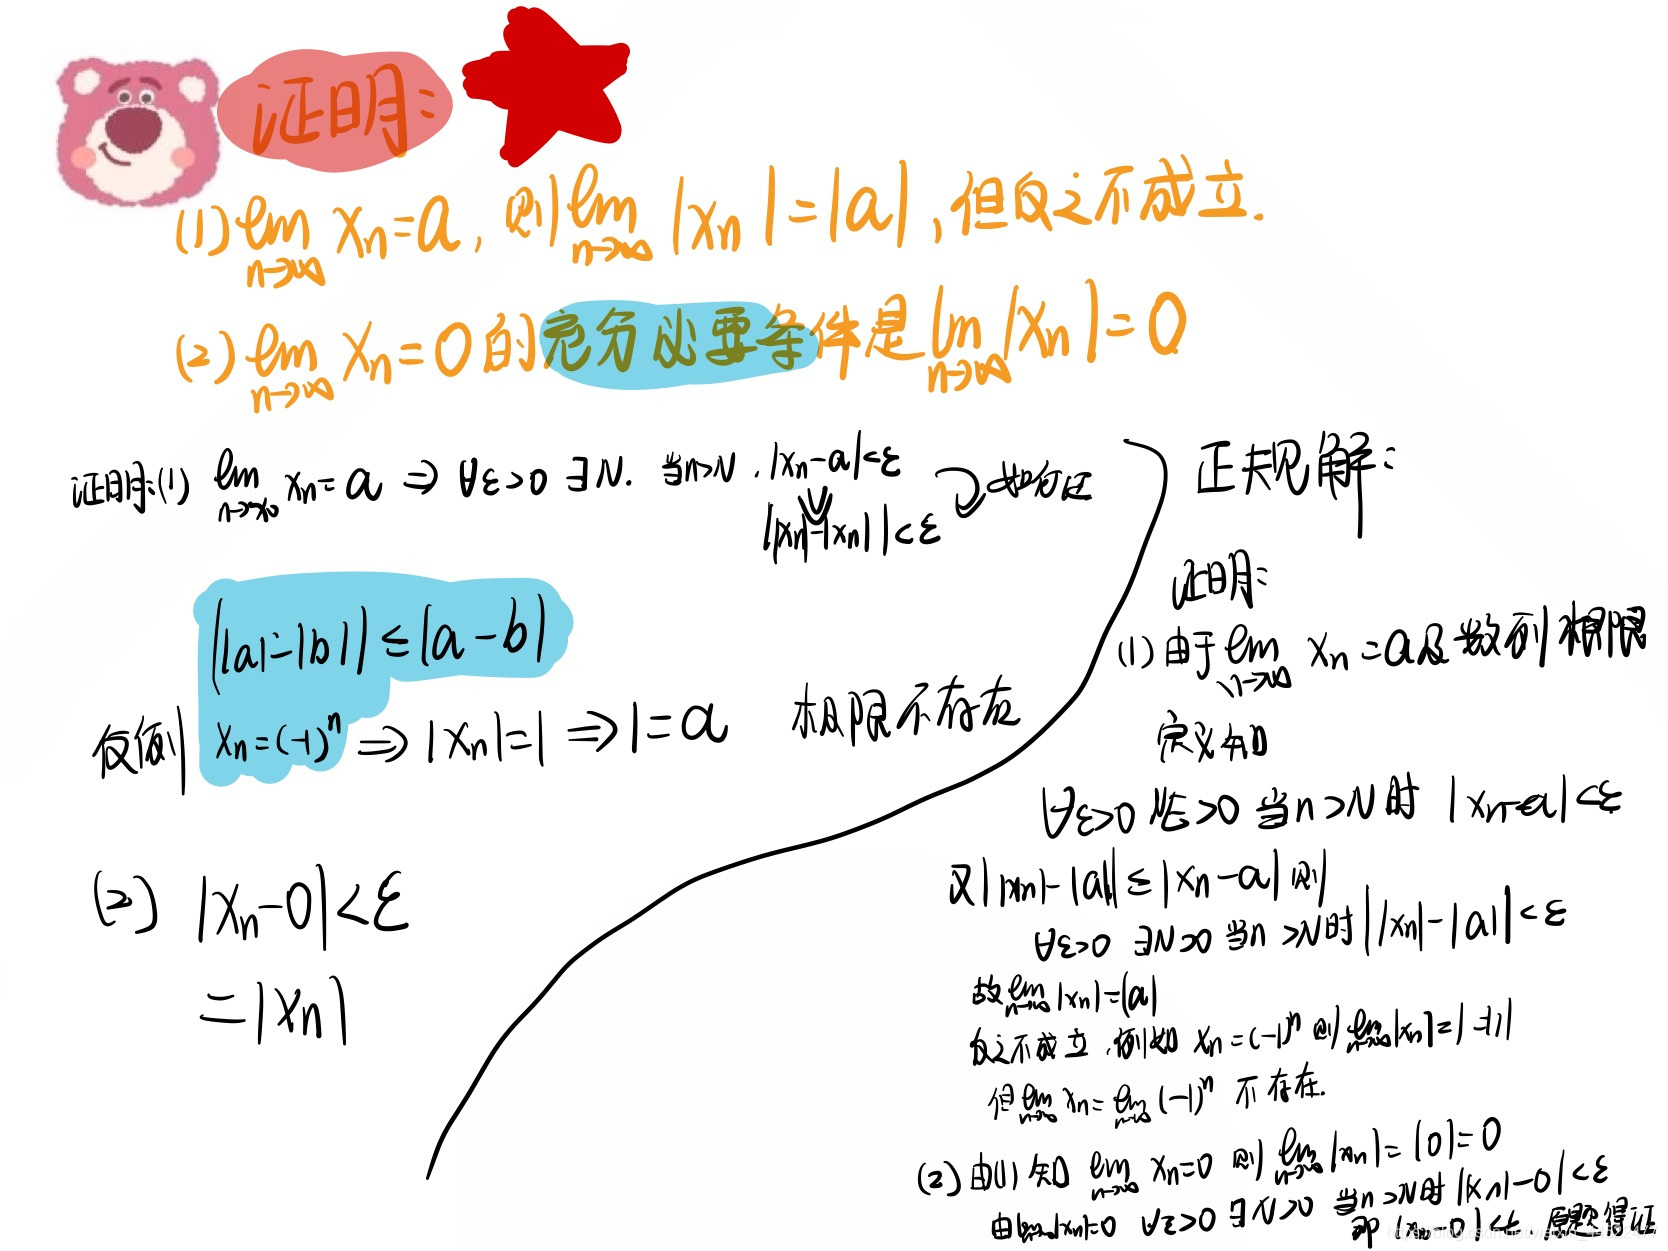 证明:
(1) lim n→∞ xn=a, 则 lim n→∞ |xn|=|a|, 但反之不成立.
(2) lim n→∞ xn=0 的充分必要条件是 lim n→∞ |xn|=0
证明:(1) lim n→∞ xn=a ⇒ ∀ε>0 ∃N. 当n>N. |xn-a|<ε
||xn|-|xn||<ε
如何证
||a|-|b||≤|a-b|
反例 xn=(-1)^n ⇒ |xn|=1 ⇒ 1=a 极限不存在
(2) |xn-0|<ε
=|xn|
正规解:
证明:
(1) 由于 lim n→∞ xn=a及数列极限
定义知
∀ε>0 当n>N时 |xn-a|<ε
又||xn|-|a||≤|xn-a| 则
∀ε>0 ∃N>0 当n>N时 ||xn|-|a||<ε
故 lim n→∞ |xn|=|a|
反之不成立, 例如 xn=(-1)^n 则 lim n→∞ |xn|=1
但 lim n→∞ xn= lim n→∞ (-1)^n 不存在.
(2) 由(1)知 lim n→∞ xn=0 则 lim n→∞ |xn|=|0|=0
由 lim |xn|=0 ∀ε>0 ∃N>0 当n>N时 ||xn|-0|<ε
即 |xn-0|<ε, 原题得证